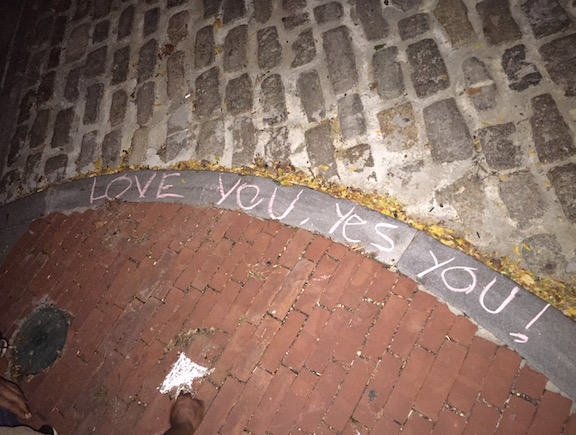 LOVE YOU, Yes YOU!